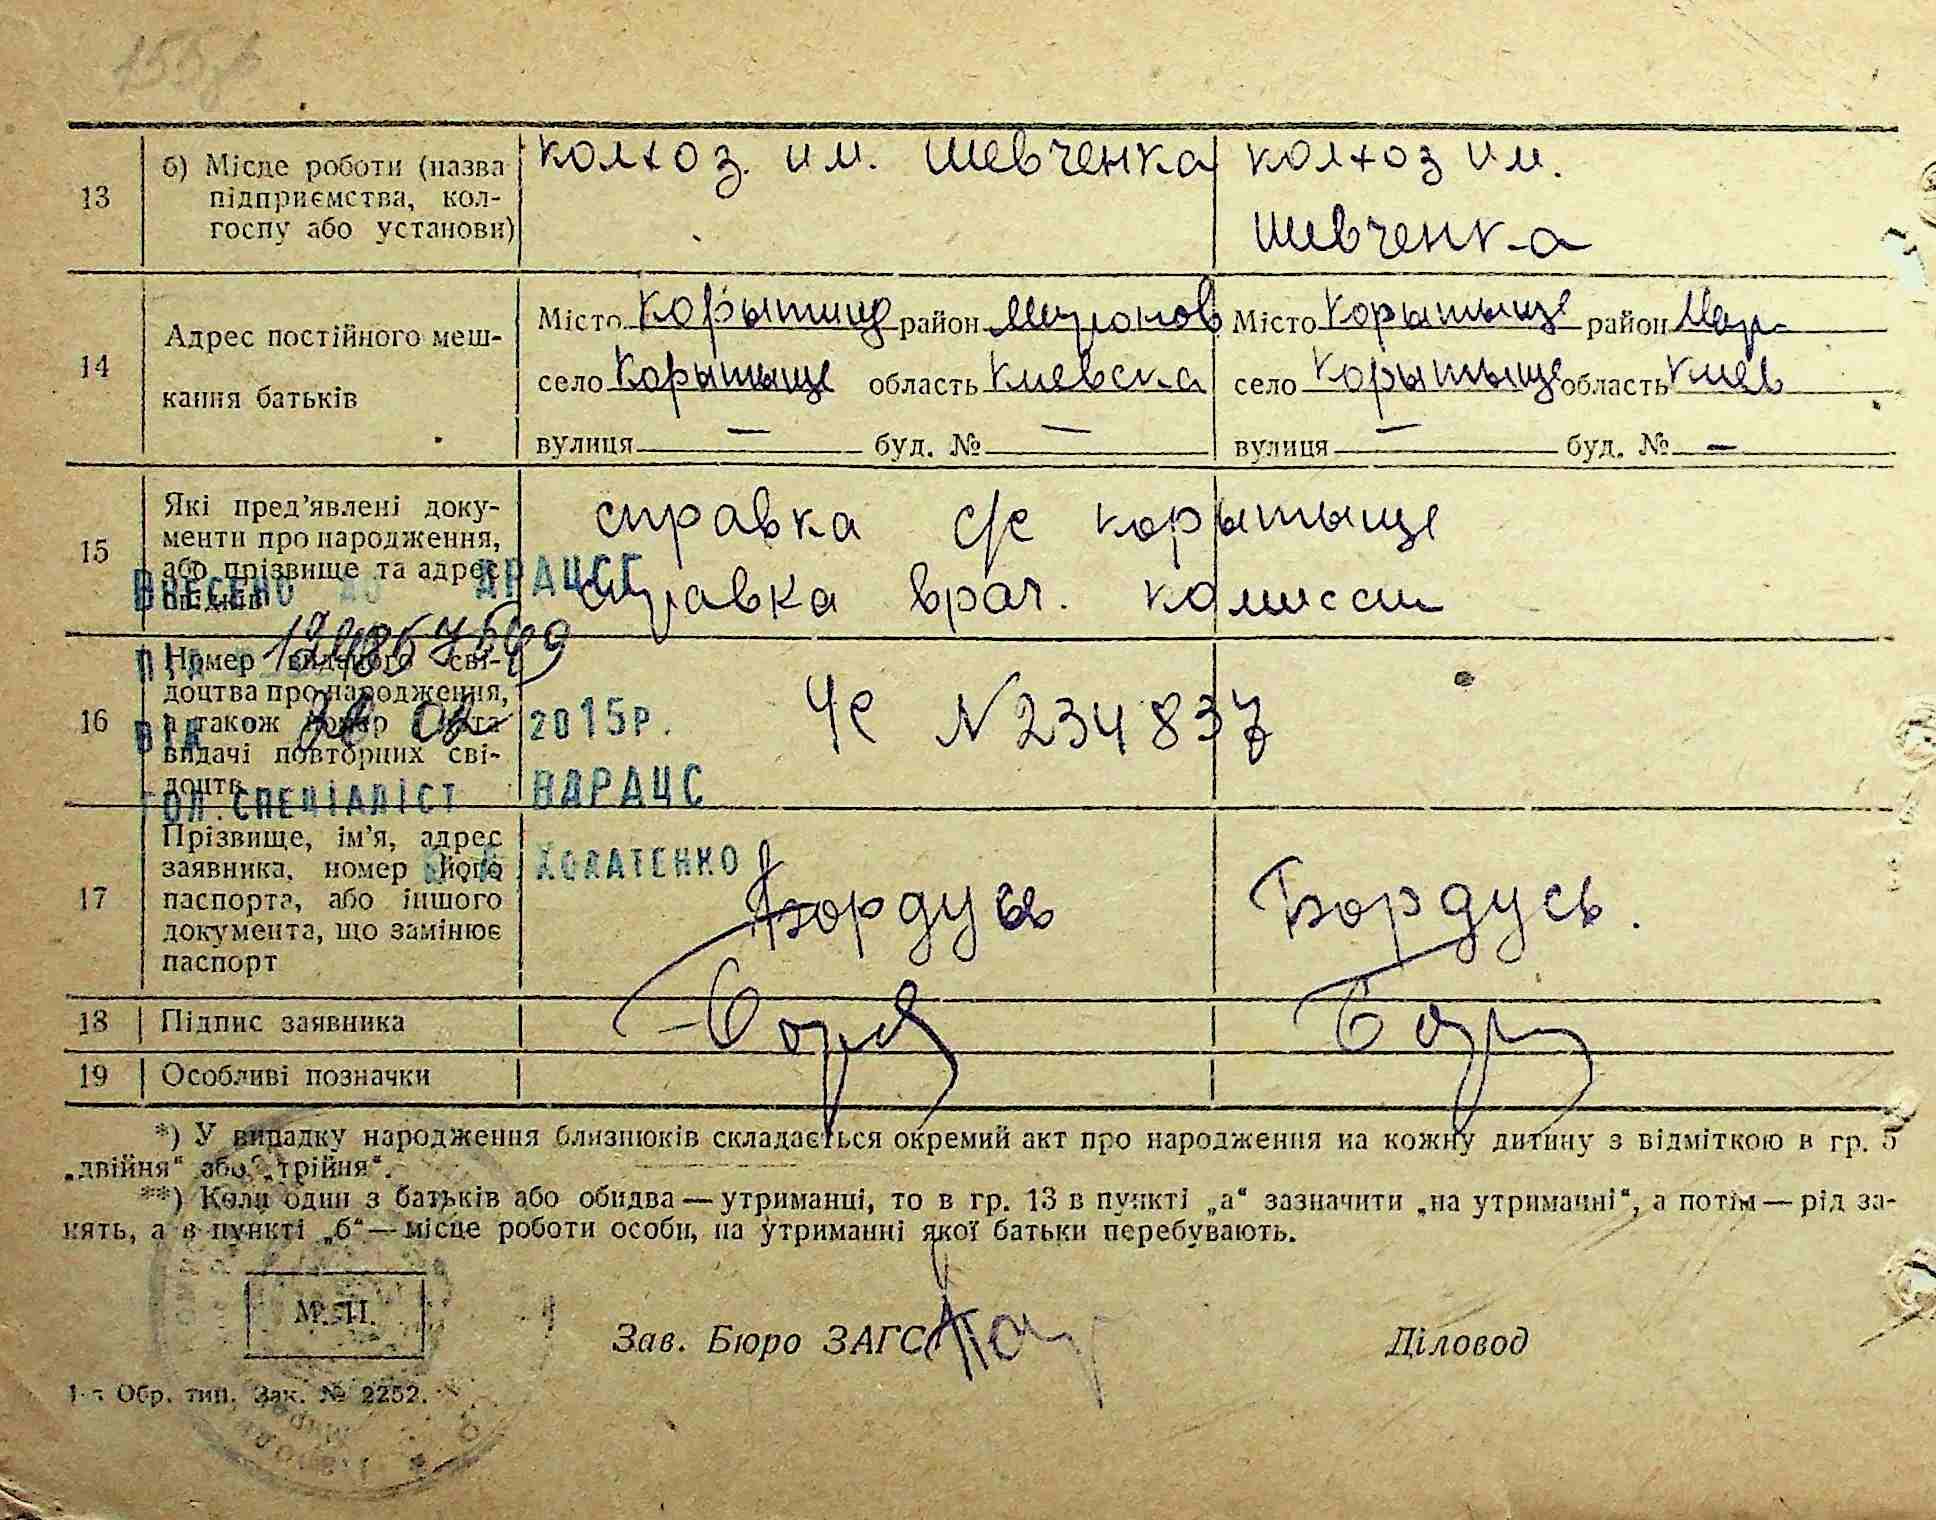 13
б) Місце роботи (назва підприємства, кол-
госпу або установи)
колхоз. им. шевченка
колхоз им.
шевченка
14
Адрес постійного меш-
кання батьків
Місто Корытище район Миронов
село Корытыще область Киевска
вулиця — буд. № —
Місто Корытыще район Мир-
село Корытыще область Киев
вулиця — буд. № —
15
Які пред'явлені доку-
менти про народження,
або прізвище та адрес
свідків
справка с/с корытыще
справка врач. комиссии
16
Номер виданого сві-
доцтва про народження,
а також номер і дата
видачі повторних сві-
доцтв
ЧС N 234837
ВНЕСЕНО ДО ДРАЦСГ
ВІД 02 2015р.
ГОЛ. СПЕЦІАЛІСТ ВДРАЦС
17
Прізвище, ім'я, адрес
заявника, номер його
паспорта, або іншого
документа, що замінює
паспорт
Бордусь
Бордусь.
18
Підпис заявника
19
Особливі позначки
*) У випадку народження близнюків складається окремий акт про народження на кожну дитину з відміткою в гр. 5
„двійня“ або „трійня“.
**) Коли один з батьків або обидва — утриманці, то в гр. 13 в пункті „а“ зазначити „на утриманні“, а потім — рід за-
нять, а в пункті „б“ — місце роботи особи, на утриманні якої батьки перебувають.
М. П.
Зав. Бюро ЗАГС
Діловод
Обр. тип. Зак. № 2252.